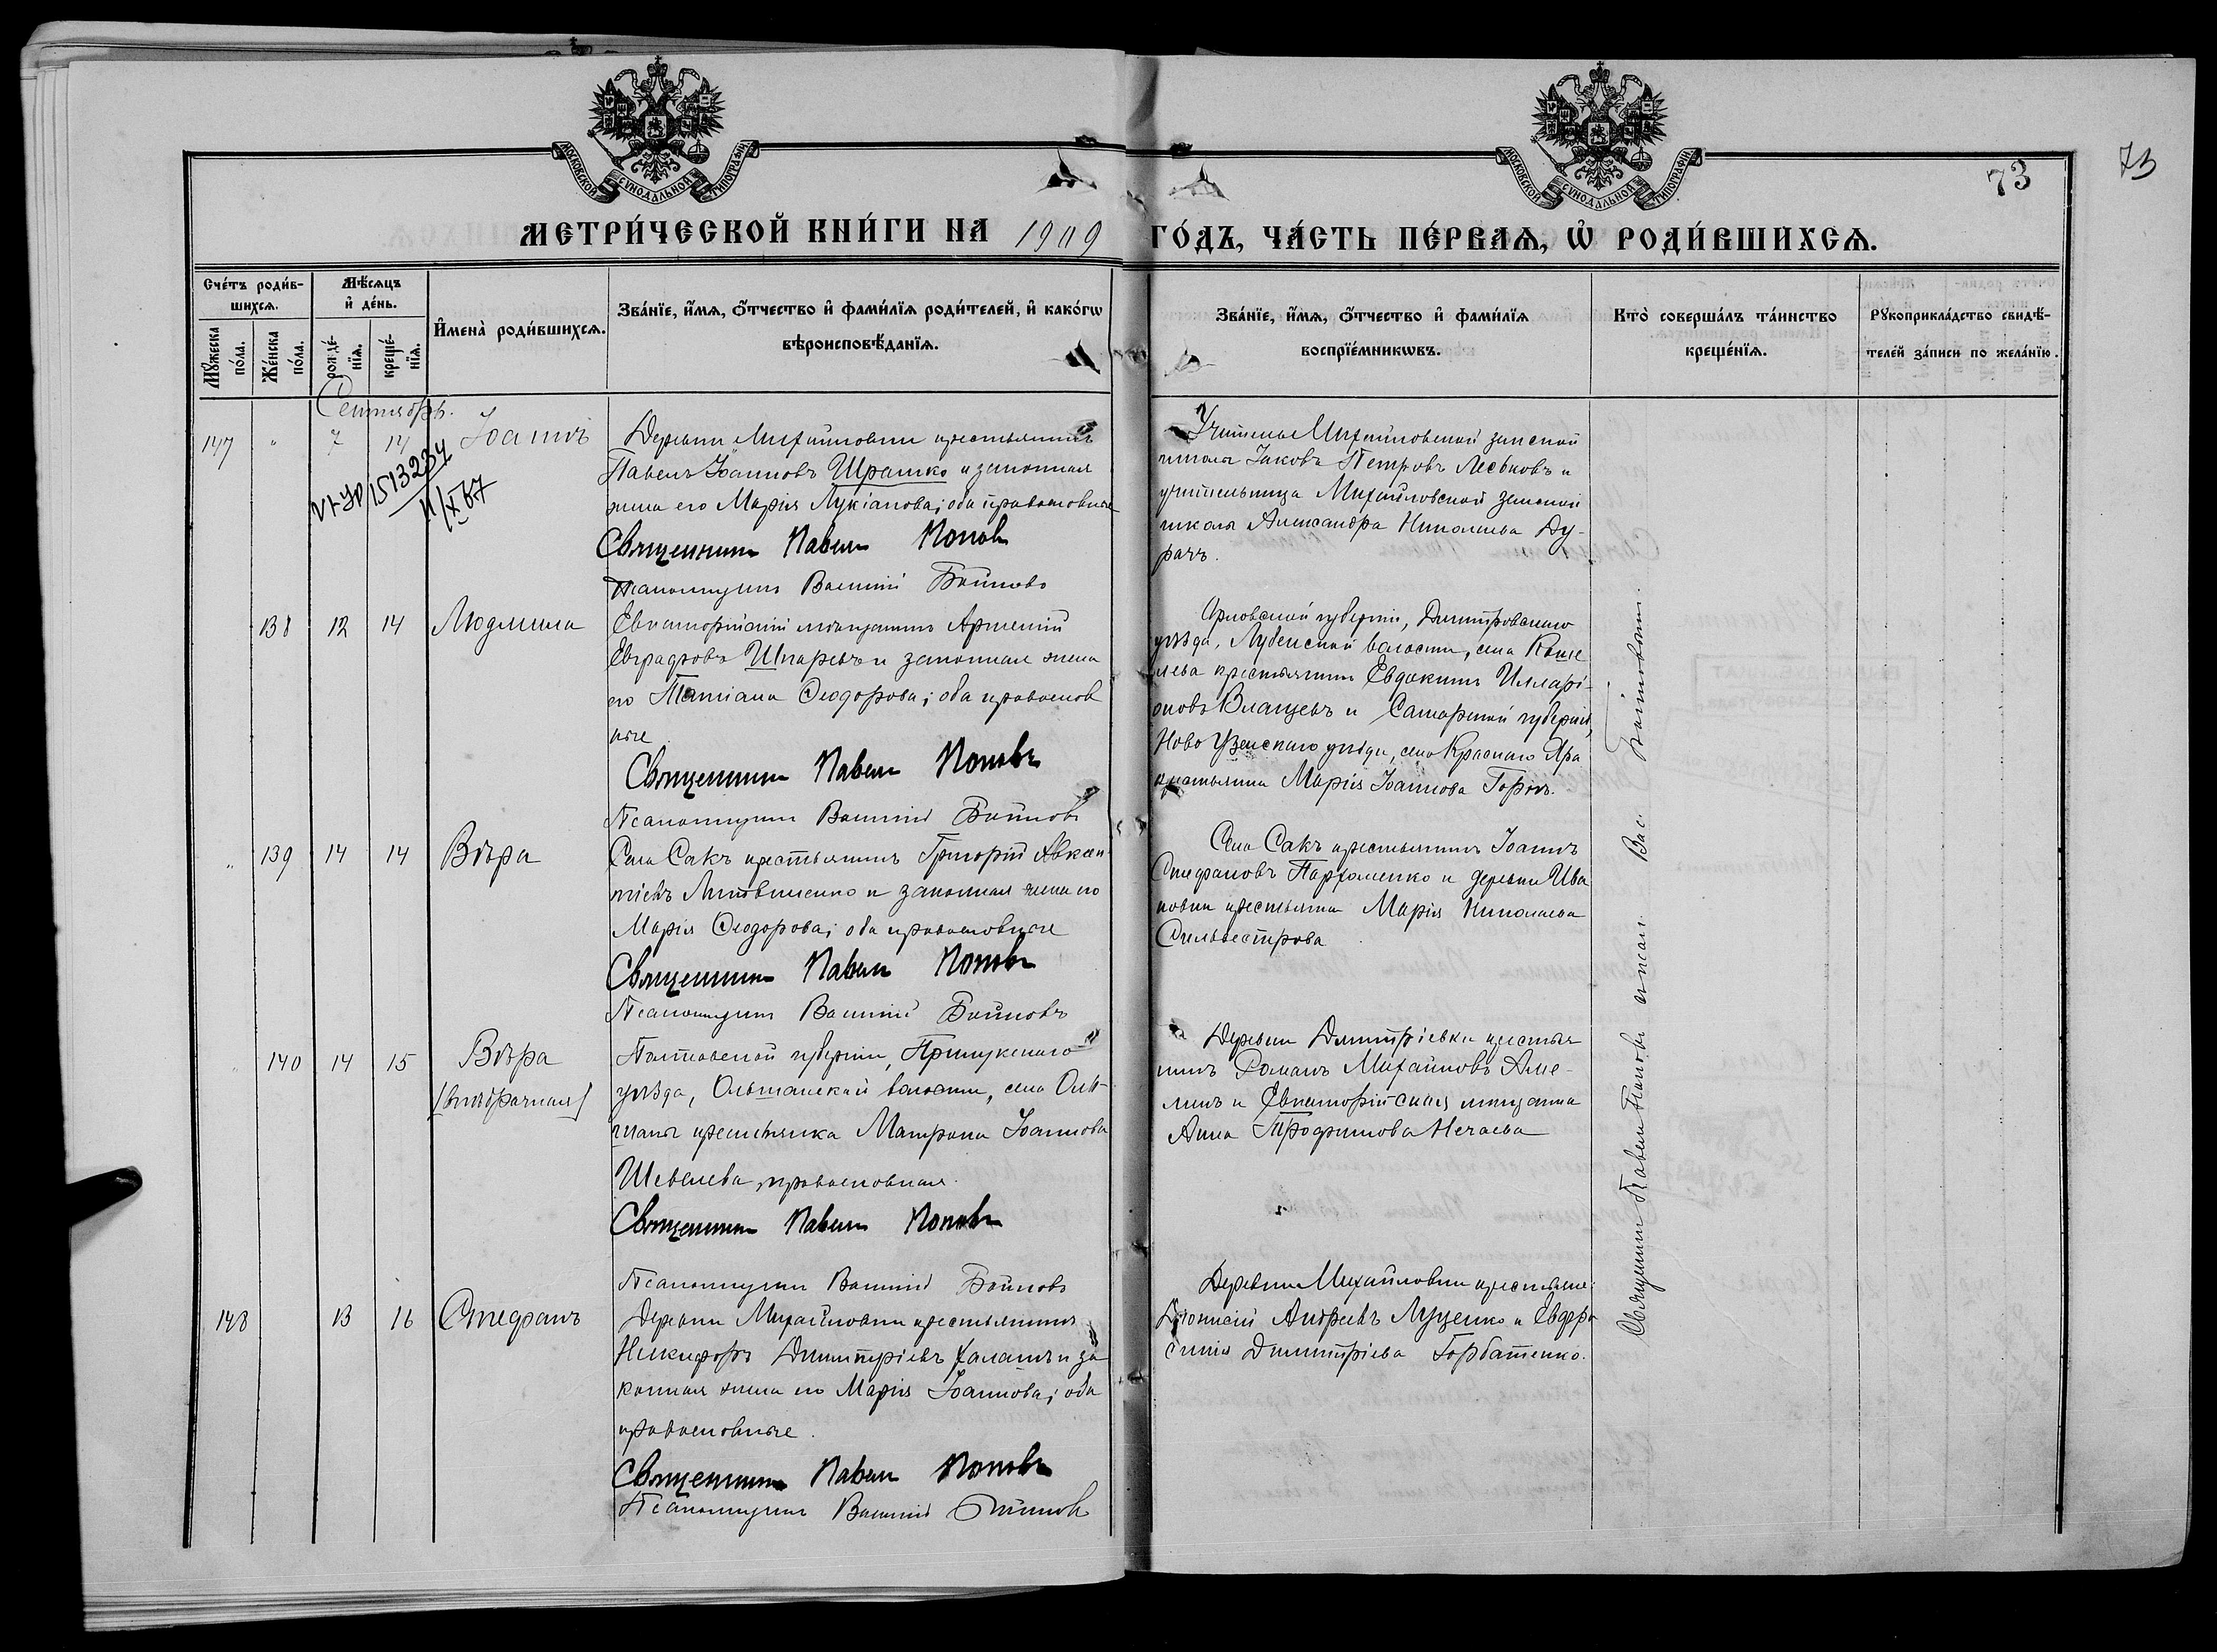 МОСКОВСКОЙ СѴНОДАЛЬНОЙ ТИПОГРАФІИ
МОСКОВСКОЙ СѴНОДАЛЬНОЙ ТИПОГРАФІИ
73
73
МЕТРИ́ЧЕСКОЙ КНИ́ГИ НА 1909 ГО́ДЪ, ЧА́СТЬ ПЕ́РВАѦ, Ѡ҆ РОДИ́ВШИХСѦ.
Сче́тъ роди́в-
шихсѧ.
Мꙋ́жеска по́ла.
Же́нска по́ла.
Мѣ́сѧцъ
и҆ де́нь.
рожде́-нїѧ.
креще́-нїѧ.
И҆мена̀ роди́вшихсѧ.
Зва́нїе, и҆́мѧ, ѻ҆́тчество и҆ фами́лїѧ роди́телей, и҆ како́гѡ
вѣроисповѣ́данїѧ.
Зва́нїе, и҆́мѧ, ѻ҆́тчество и҆ фами́лїѧ
воспрїе́мникѡвъ.
Кто̀ соверша́лъ та́инство
креще́нїѧ.
Рꙋкоприкла́дство свидѣ́-
телей за́писи по жела́нїю.
Сентябрь.
147 " 7 14 Іоаннъ
1513234
11/X 67
Деревни Михайловки крестьянинъ
Павелъ Іоанновъ Шрамко и законная
жена его Марія Лукіанова; оба православные
Священникъ Павелъ Поповъ
Псаломщикъ Василій Бойновъ
Учитель Михайловской земской
школы Іаковъ Петровъ Леськовъ и
учительница Михайловской земской
школы Александра Николаева Ду-
рачъ.
138 12 14 Людмила
Евпаторійскій мѣщанинъ Арсеній
Евграфовъ Шпаревъ и законная жена
его Татіана Ѳеодорова; оба православ
ные
Священникъ Павелъ Поповъ
Псаломщикъ Василій Бойновъ
Орловской губерніи, Димитровскаго
уѣзда, Лубенской волости, села Коше
лева крестьянинъ Евдокимъ Илларі-
оновъ Влащевъ и Самарской губерніи,
Ново Узенскаго уѣзда, села Краснаго Яра
крестьянка Марія Іоаннова Горнъ.
" 139 14 14 Вѣра
Села Сакъ крестьянинъ Григорій Авксен
тіевъ Литвиненко и законная жена его
Марія Ѳеодорова; оба православные
Священникъ Павелъ Поповъ
Псаломщикъ Василій Бойновъ
Села Сакъ крестьянинъ Іоаннъ
Стефановъ Пархоменко и деревни Ива
новки крестьянка Марія Николаева
Сильвестрова
" 140 14 15 Вѣра
(внѣбрачная)
Полтавской губерніи, Прилукскаго
уѣзда, Ольшанской волости, села Оль-
шаны крестьянка Матрона Іоаннова
Шевелева, православная.
Священникъ Павелъ Поповъ
Псаломщикъ Василій Бойновъ
Деревни Димитріевки крестья
нинъ Романъ Михайловъ Аме-
линъ и Евпаторійская мѣщанка
Анна Трофимова Нечаева
148 13 16 Стефанъ
Деревни Михайловки крестьянинъ
Никифоръ Димитріевъ Халать и за
конная жена его Марія Іоаннова; оба
православные.
Священникъ Павелъ Поповъ
Псаломщикъ Василій Бойновъ
Деревни Михайловки крестьяне:
Діонисій Андреевъ Луценко и Евфро
синія Димитріева Горбатенко.
Священникъ Павелъ Поповъ и псал. Вас. Бойновым.